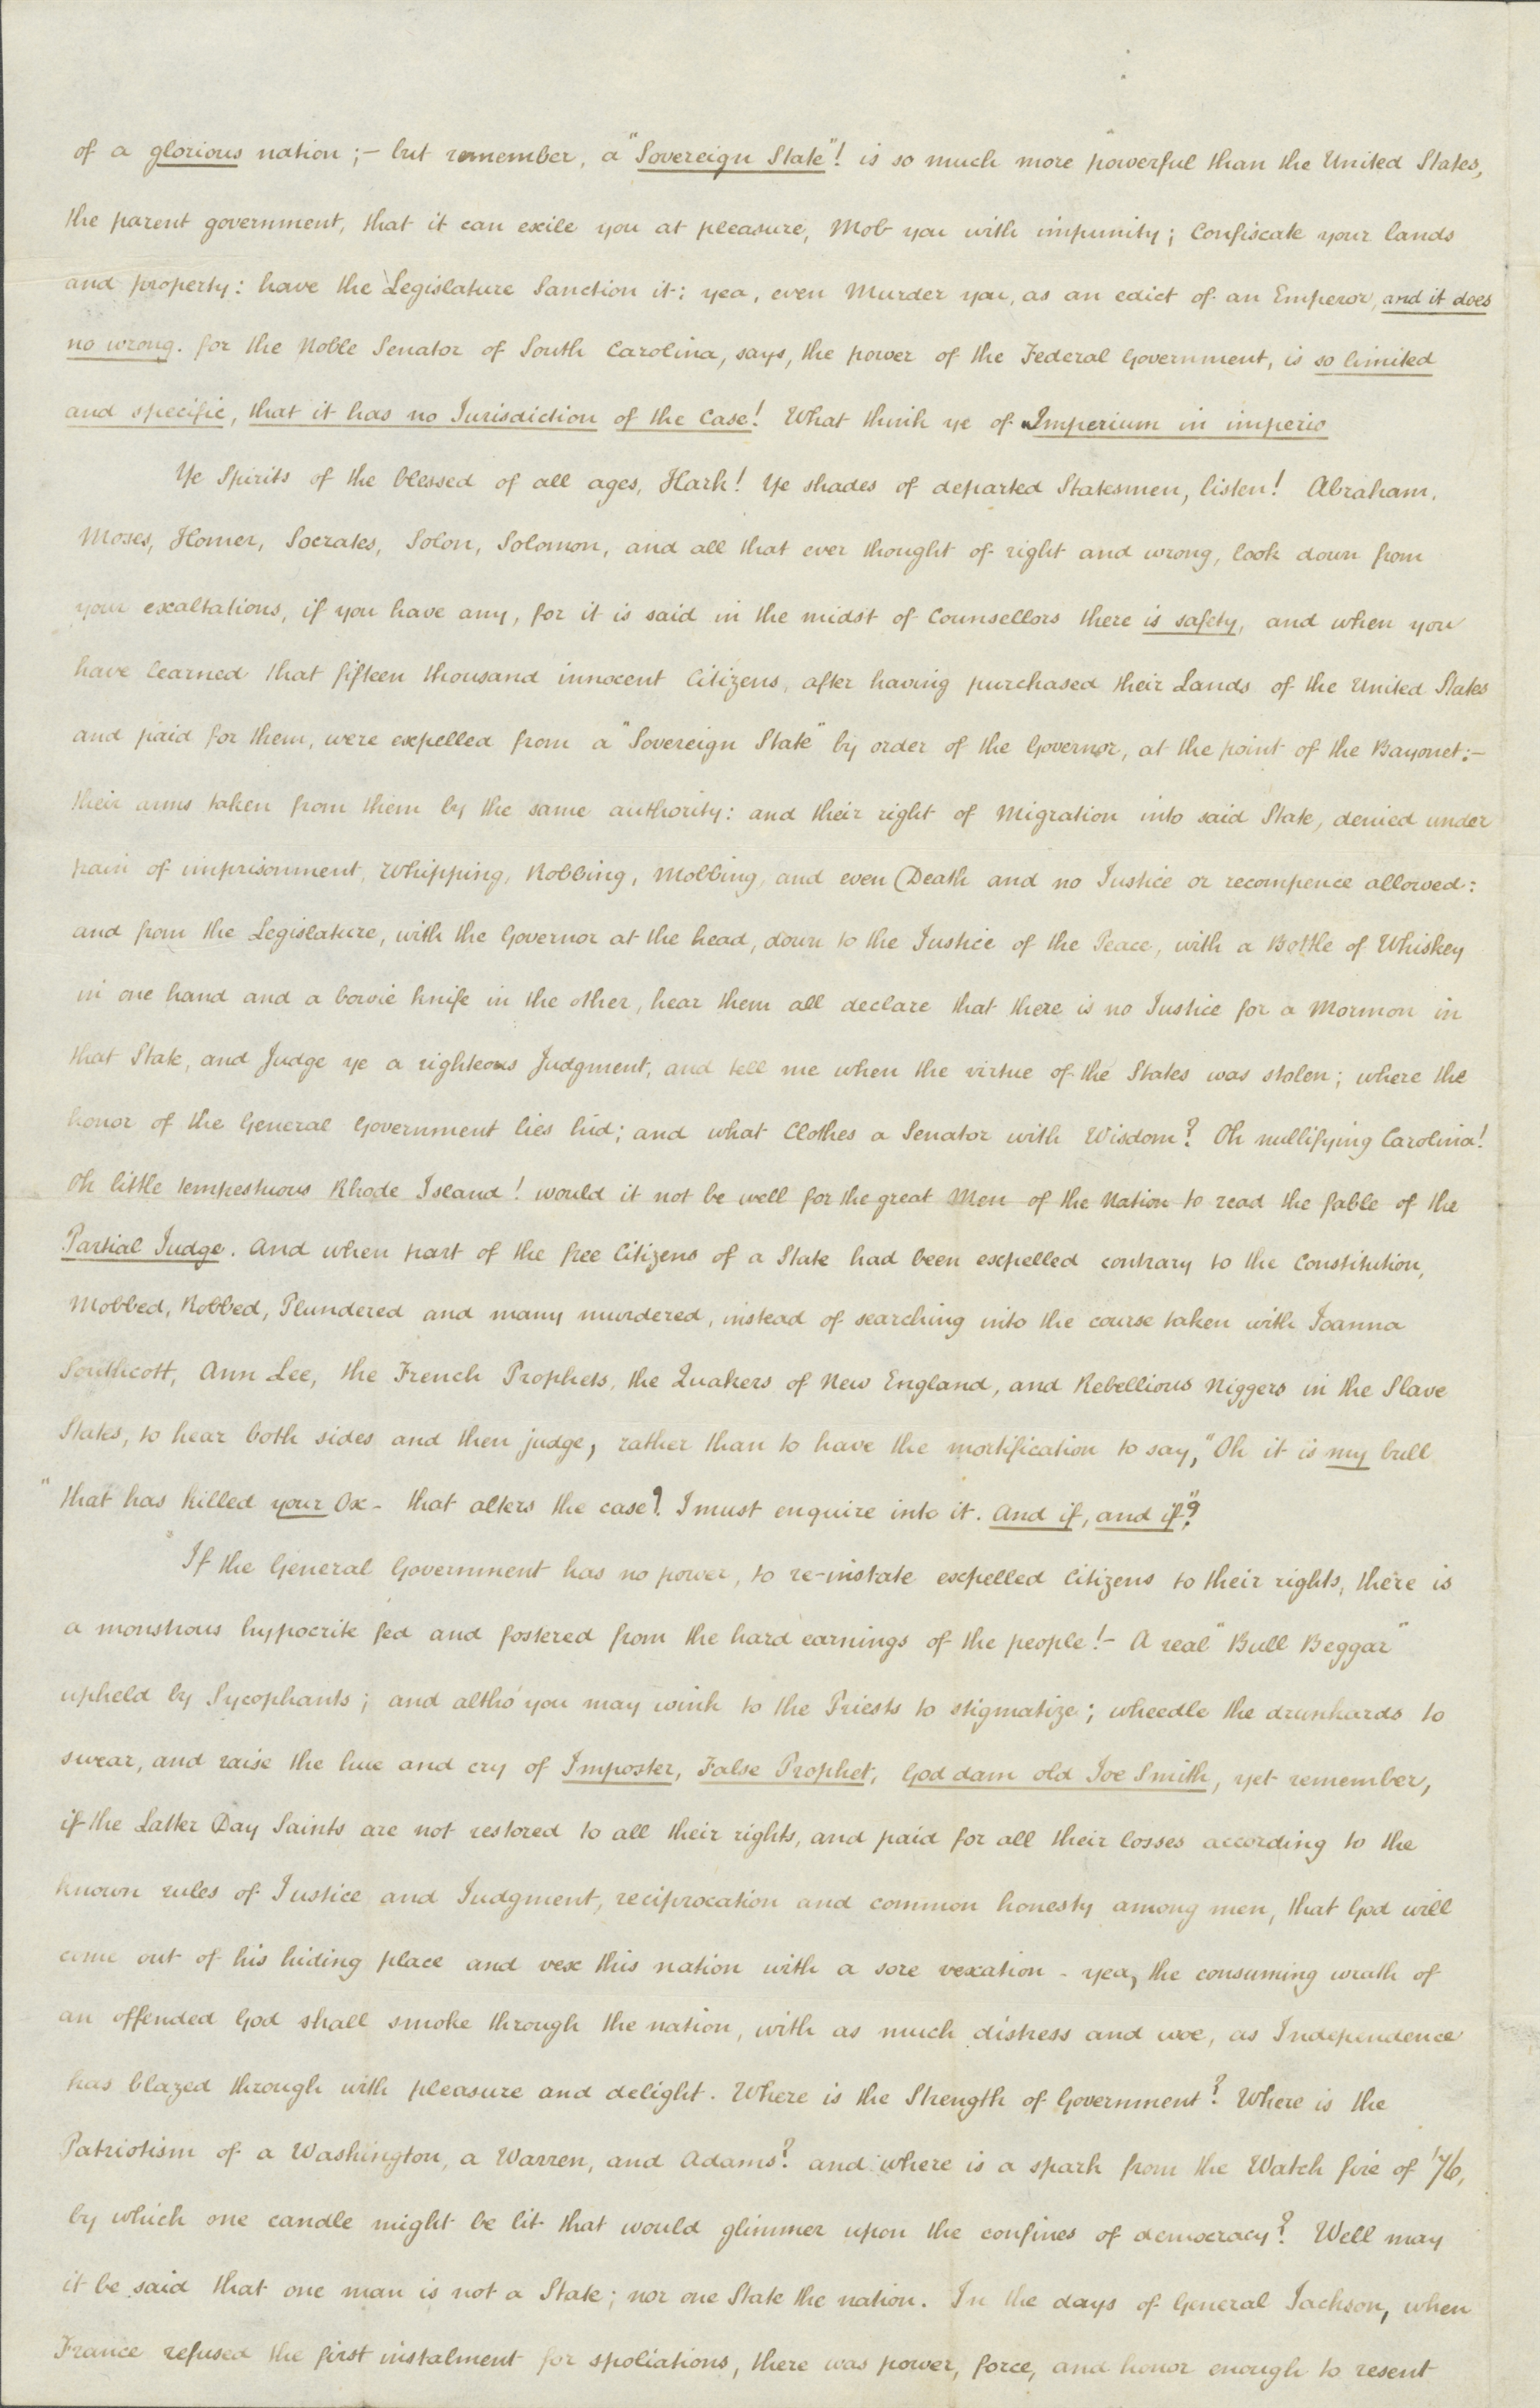 of a glorious nation;- but remember, a "Sovereign State"! is so much more powerful than the United States,
the parent government, that it can exile you at pleasure, Mob you with impunity; Confiscate your lands
and property: have the Legislature Sanction it: yea, even Murder you, as an edict of an Emperor, and it does
no wrong. for the Noble Senator of South Carolina, says, the power of the Federal Government, is so limited
and specific, that it has no Jurisdiction of the Case! What think ye of "Imperium in imperio
Ye Spirits of the blessed of all ages, Hark! Ye shades of departed Statesmen, listen! Abraham,
Moses, Homer, Socrates, Solon, Solomon, and all that ever thought of right and wrong, look down from
your exaltations, if you have any, for it is said in the midst of Counsellors there is safety, and when you
have learned that fifteen thousand innocent Citizens, after having purchased their Lands of the United States
and paid for them, were expelled from a "Sovereign State" by order of the Governor, at the point of the Bayonet:-
their arms taken from them by the same authority: and their right of Migration into said State, denied under
pain of imprisonment, Whipping, Robbing, Mobbing, and even Death and no Justice or recompence allowed:
and from the Legislature, with the Governor at the head, down to the Justice of the Peace, with a Bottle of Whiskey
in one hand and a bowie knife in the other, hear them all declare that there is no Justice for a Mormon in
that State, and Judge ye a righteous Judgment, and tell me when the virtue of the States was stolen; where the
honor of the General Government lies hid; and what Clothes a Senator with Wisdom? Oh nullifying Carolina!
Oh little tempestuous Rhode Island! would it not be well for the great Men of the Nation to read the fable of the
Partial Judge. And when part of the free Citizens of a State had been expelled contrary to the Constitution,
Mobbed, Robbed, Plundered and many murdered, instead of searching into the course taken with Joanna
Southcott, Ann Lee, the French Prophets, the Quakers of New England, and Rebellious Niggers in the Slave
States, to hear both sides and then judge, rather than to have the mortification to say, "Oh it is my bull
"that has killed your Ox - that alters the case! I must enquire into it. And if, and if"?
"If the General Government has no power, to re-instate expelled Citizens to their rights, there is
a monstrous hypocrite fed and fostered from the hard earnings of the people!- A real "Bull Beggar"
upheld by Sycophants; and altho' you may wink to the Priests to stigmatize; wheedle the drunkards to
swear, and raise the hue and cry of Imposter, False Prophet, God dam old Joe Smith, yet remember,
if the Latter Day Saints are not restored to all their rights, and paid for all their losses according to the
known rules of Justice and Judgment, reciprocation and common honesty among men, that God will
come out of his hiding place and vex this nation with a sore vexation - yea, the consuming wrath of
an offended God shall smoke through the nation, with as much distress and woe, as Independence
has blazed through with pleasure and delight. Where is the Strength of Government? Where is the
Patriotism of a Washington, a Warren, and Adams? and where is a spark from the Watch fire of '76,
by which one candle might be lit that would glimmer upon the confines of democracy? Well may
it be said that one man is not a State; nor one State the nation. In the days of General Jackson, when
France refused the first instalment for spoliations, there was power, force, and honor enough to resent